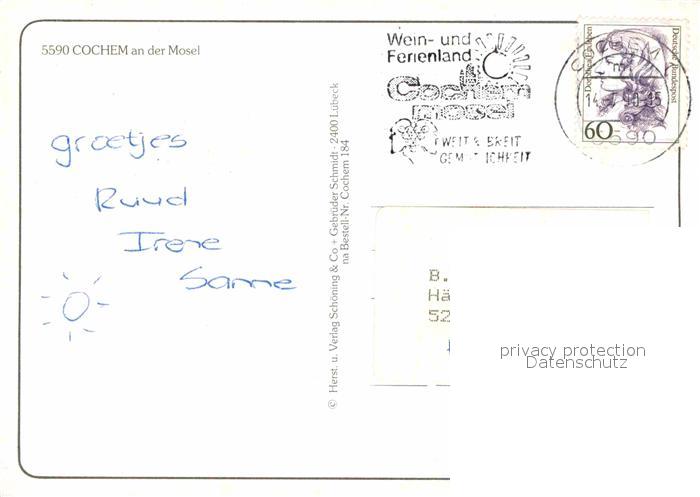 5590 COCHEM an der Mosel
Wein- und
Ferienland
Cochem
mosel
WEIT & BREIT
GEMÜTLICHKEIT
COCHEM
5590
Deutsche Bundespost
60
groetjes
Ruud
Irene
Sanne
© Herst. u. Verlag Schöning & Co + Gebrüder Schmidt · 2400 Lübeck
na Bestell-Nr. Cochem 184
B.
Hä
52
privacy protection
Datenschutz